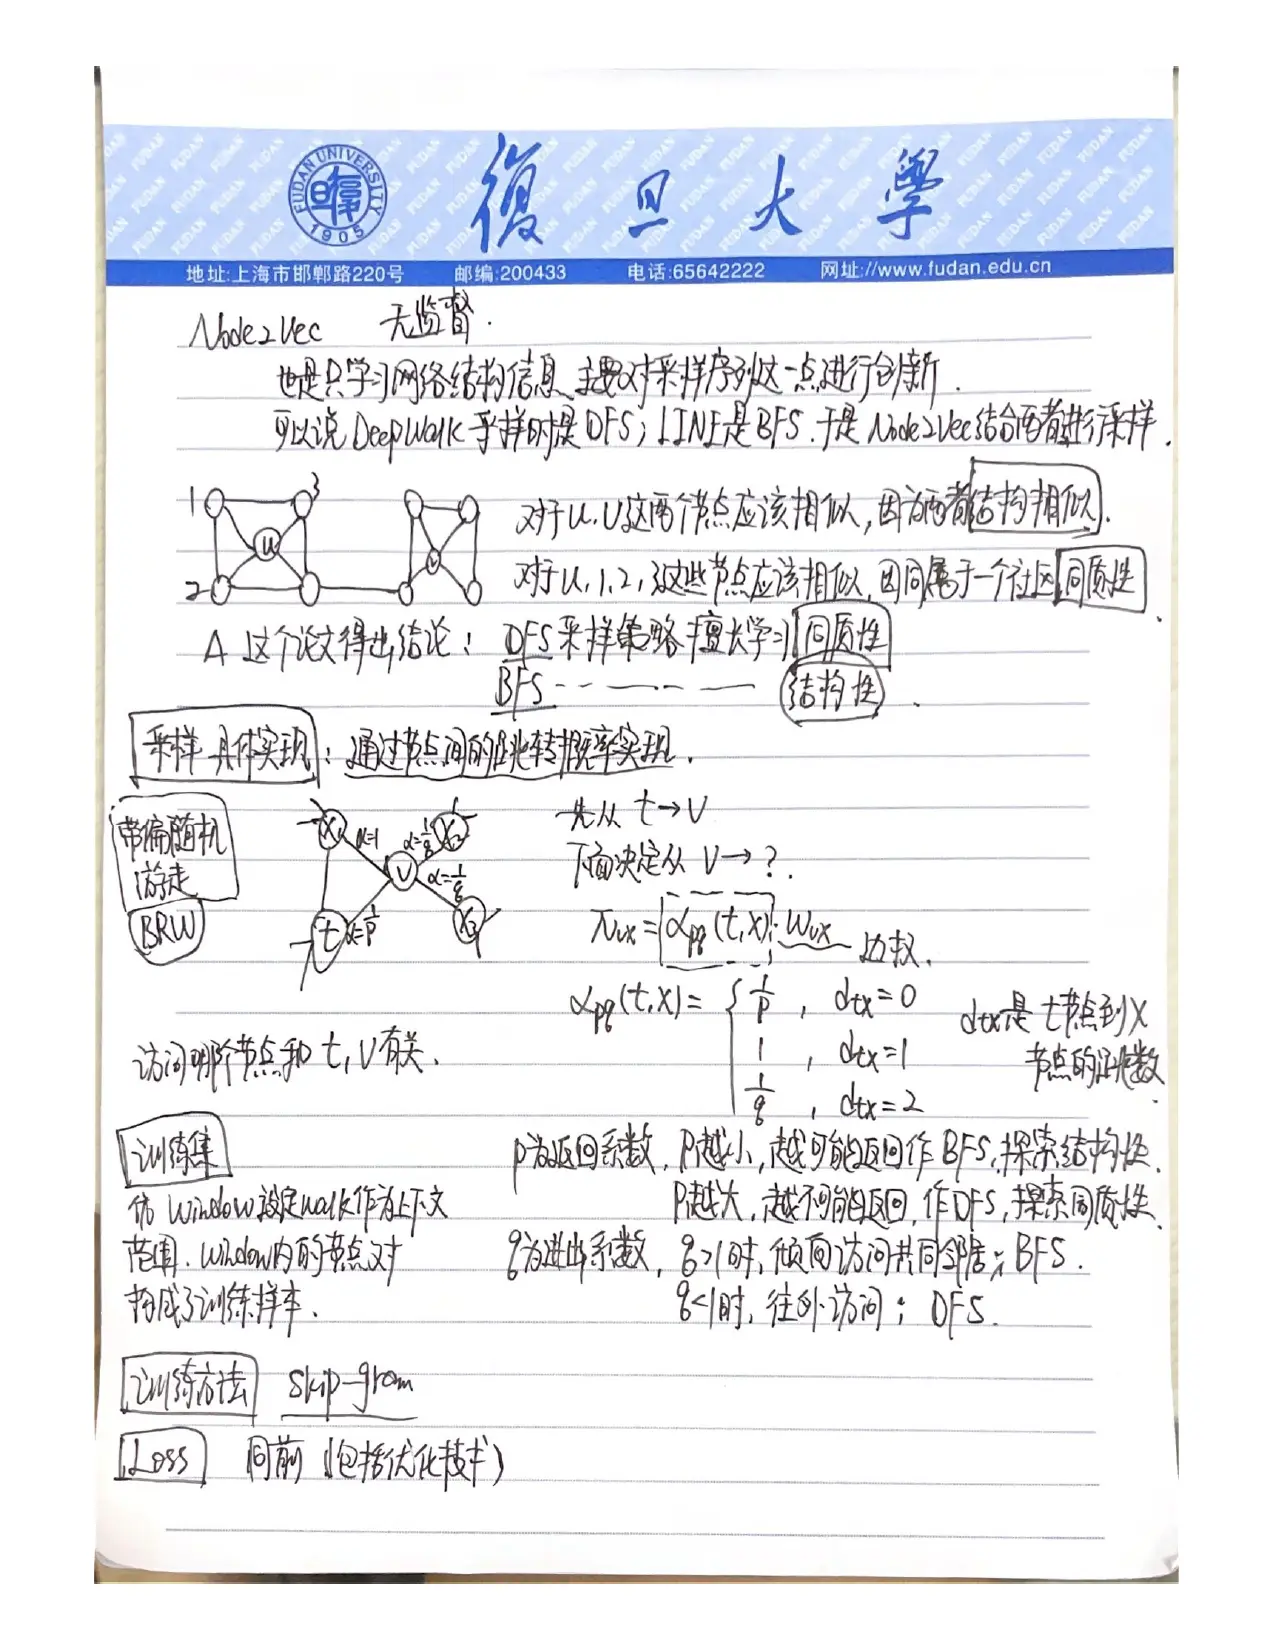 FUDAN UNIVERSITY 1905
復旦大學
地址:上海市邯郸路220号 邮编:200433 电话:65642222 网址://www.fudan.edu.cn
Node2Vec 无监督.
也是只学习网络结构信息,主要对采样序列这一点进行创新.
可以说DeepWalk采样时是DFS;LINE是BFS.于是Node2Vec结合两者进行采样.
1 3 u 2 v
对于u,v这两个节点应该相似,因为两者结构相似.
对于u,1,2,3这些节点应该相似,因同属于一个社区同质性.
A 这个论文得出结论: DFS采样策略擅长学习同质性
BFS 结构性.
采样具体实现:通过节点间的跳转概率实现.
带偏随机
游走
BRW
x₁ α=1 α=1/q x₂
v α=1/q
t α=1/p x₃
先从 t→v
下面决定从 v→?.
πvx = αpq(t,x)·wvx 边权.
αpq(t,x)= { 1/p , dtx=0
1 , dtx=1
1/q , dtx=2
dtx是t节点到x
节点的跳数.
访问哪个节点和t,v有关.
训练集
Window设定walk作为上下文
范围.Window内的节点对
构成了训练样本.
p为返回系数,P越小,越可能返回作BFS,探索结构性.
P越大,越不可能返回,作DFS,探索同质性.
q为进出系数,q>1时,倾向访问共同邻居;BFS.
q<1时,往外访问;DFS.
训练方法 skip-gram
Loss 同前(包括优化技术)